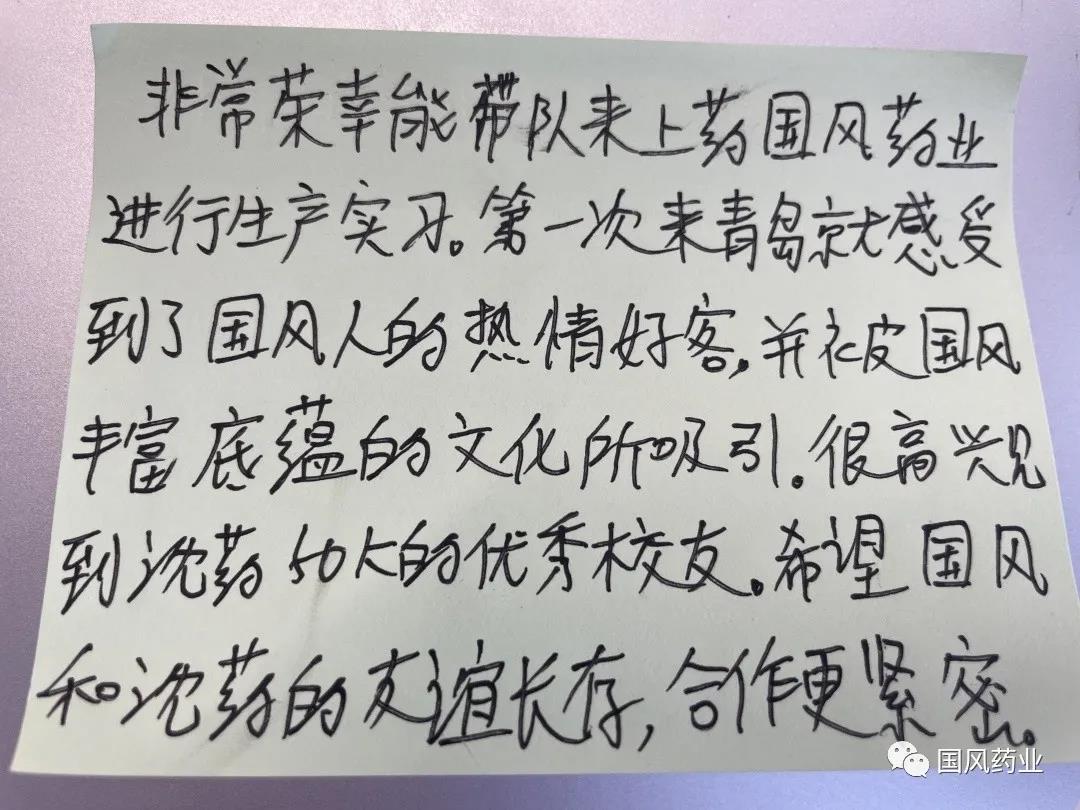 非常荣幸能带队来上药国风药业
进行生产实习。第一次来青岛就感受
到了国风人的热情好客,并被国风
丰富底蕴的文化所吸引。很高兴见
到沈药50大的优秀校友。希望国风
和沈药的友谊长存,合作更紧密。
国风药业